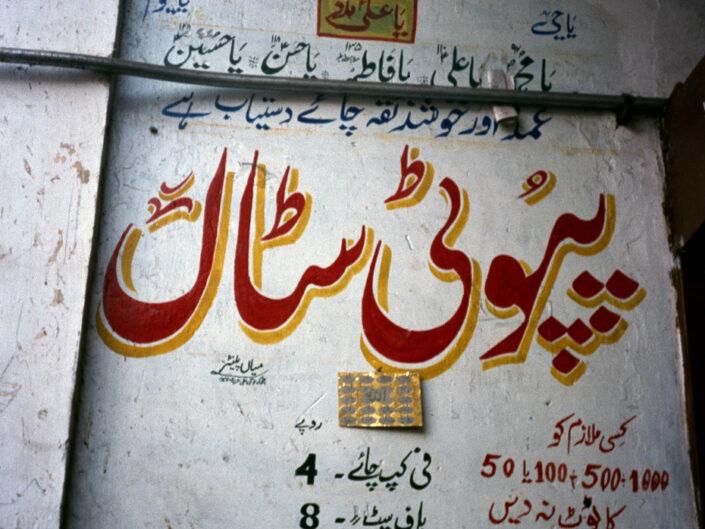 یا علیؑ مدد
یا حیّ
یا محمدؐ یا علیؑ یا فاطمہؑ یا حسنؑ یا حسینؑ
عمدہ اور خوشذئقہ چائے دستیاب ہے
پپوُ ٹی سٹال
میاں پینٹر
اللہ
روپے
فی کپ چائے - 4
ہاف سیٹ - 8
کسی ملازم کو
50 یا 100 500 1000
کا نوٹ نہ دیں